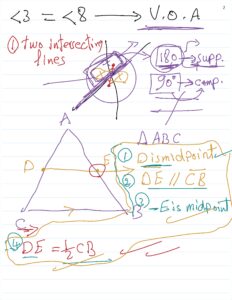 <3 = <8 → V.O.A
① two intersecting lines
180 → supp.
90° → comp.
A
Δ ABC
D
E
① D is midpoint
② DE // CB
③ - E is midpoint
C
B
④ DE = ½ CB